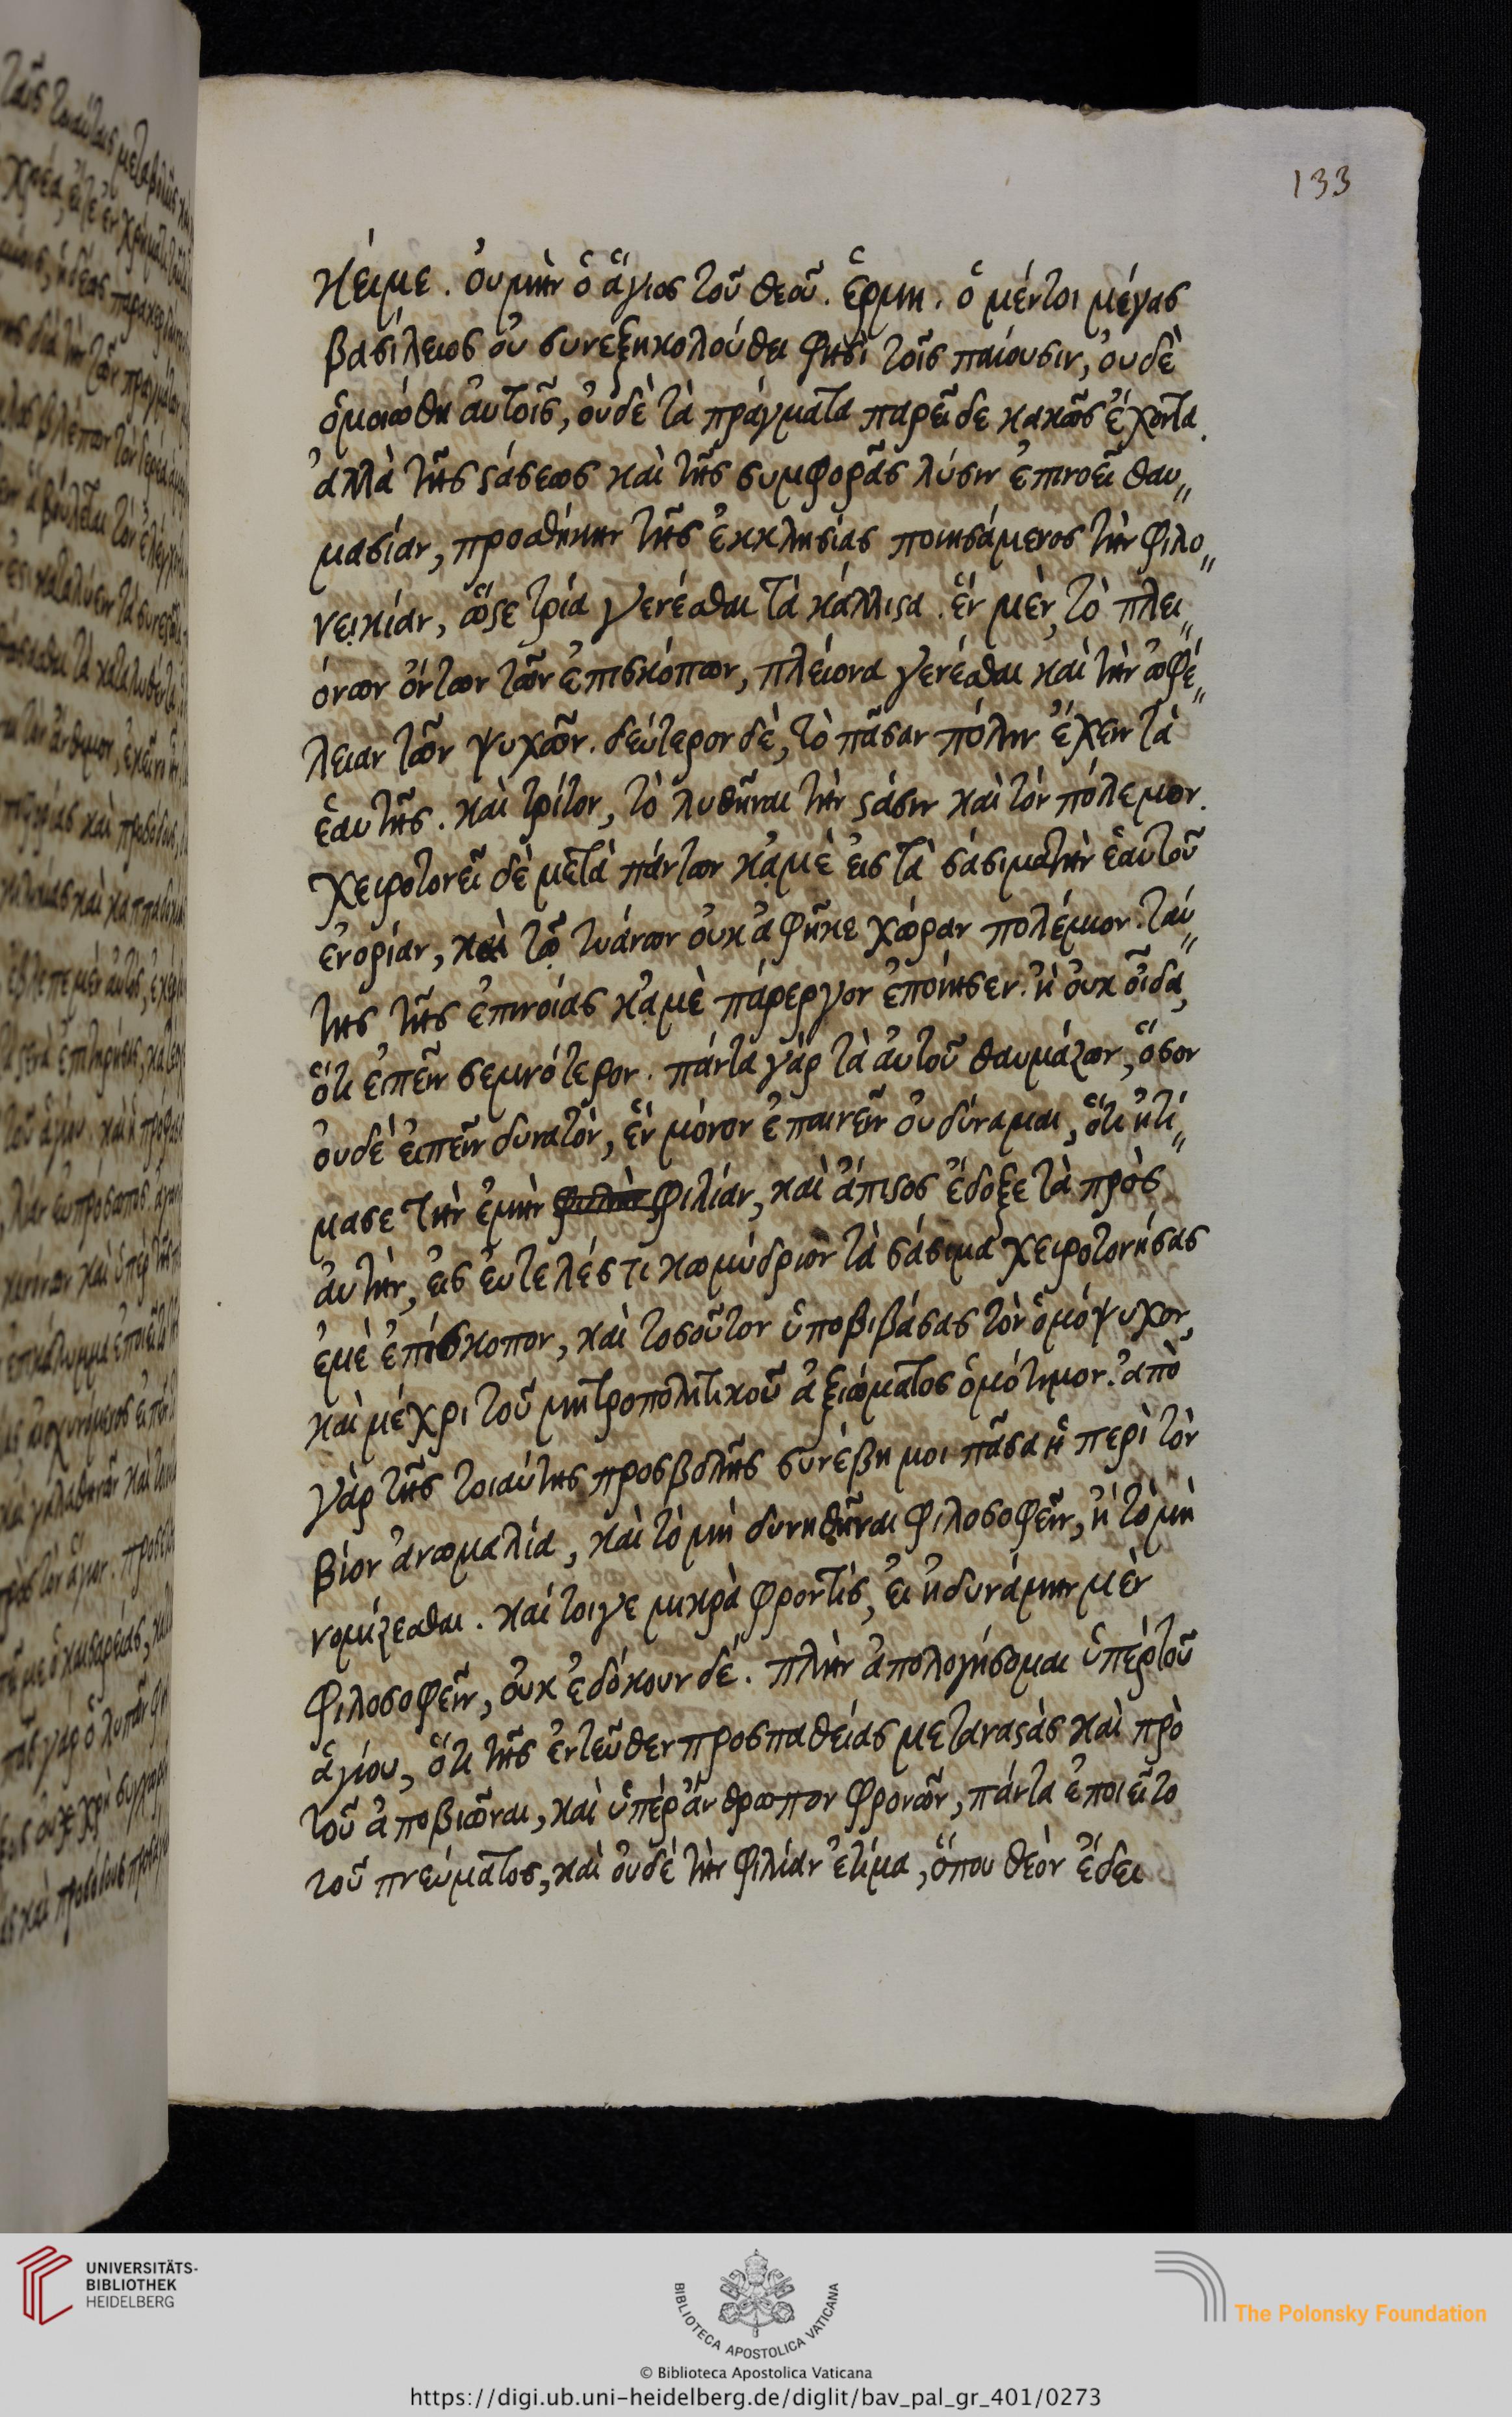 133
κείμε. οὐ μὴν ὁ ἅγιος τοῦ θεοῦ. ἑρμη. ὁ μέντοι μέγας
βασίλειος οὐ συνεξηκολούθει φησὶ τοῖς παίουσιν, οὐδὲ
ὁμοιώθη αὐτοῖς, οὐδὲ τὰ πράγματα παρεῖδε κακῶς ἔχοντα.
ἀλλὰ τῆς ϛάσεως καὶ τῆς συμφορᾶς λύσιν ἐπινοεῖ θαυ„
μασίαν, προσθήκην τῆς ἐκκλησίας ποιησάμενος τὴν φιλο„
νεικίαν, ὥϛε τρία γενέσθαι τὰ κάλλιϛα. ἓν μὲν, τὸ πλει„
όνων ὄντων τῶν ἐπισκόπων, πλείονα γενέσθαι καὶ τὴν ὠφέ„
λειαν τῶν ψυχῶν. δεύτερον δὲ, τὸ πᾶσαν πόλιν ἔχειν τὰ
ἑαυτῆς. καὶ τρίτον, τὸ λυθῆναι τὴν ϛάσιν καὶ τὸν πόλεμον.
χειροτονεῖ δὲ μετὰ πάντων κἀμὲ εἰς τὰ σάσιμα τὴν ἑαυτοῦ
ἐνορίαν, καὶ τῷ τυάνων οὐκ ἀφῆκε χώραν πολέμιον. ταύ„
της τῆς ἐπινοίας κἀμὲ πάρεργον ἐποίησεν. ἢ οὐκ οἶδα,
ὅτι εἰπεῖν σεμνότερον. πάντα γὰρ τὰ αὐτοῦ θαυμάζων, ὅσον
οὐδὲ εἰπεῖν δυνατὸν, ἓν μόνον ἐπαινεῖν οὐ δύναμαι, ὅτι ἠτί„
μασε τὴν ἐμὴν φιλίαν, καὶ ἄπιϛος ἔδοξε τὰ πρὸς
αὐτὴν, εἰς εὐτελές τι κωμύδριον τὰ σάσιμα χειροτονήσας
ἐμὲ ἐπίσκοπον, καὶ τοσοῦτον ὑποβιβάσας τὸν ὁμόψυχον,
καὶ μέχρι τοῦ μητροπολιτικοῦ ἀξιώματος ὁμότιμον. ἀπὸ
γὰρ τῆς τοιαύτης προσβολῆς συνέβη μοι πᾶσα ἡ περὶ τὸν
βίον ἀνωμαλία, καὶ τὸ μὴ δυνηθῆναι φιλοσοφεῖν, ἢ τὸ μὴ
νομίζεσθαι. καίτοιγε μικρὰ φροντὶς, εἰ ἠδυνάμην μὲν
φιλοσοφεῖν, οὐκ ἐδόκουν δέ. πλὴν ἀπολογήσομαι ὑπὲρ τοῦ
ἁγίου, ὅτι τῆς ἐντεῦθεν προσπαθείας μεταναϛὰς καὶ πρὸ
τοῦ ἀποβιῶναι, καὶ ὑπὲρ ἄνθρωπον φρονῶν, πάντα ἐποιεῖτο
τοῦ πνεύματος, καὶ οὐδὲ τὴν φιλίαν ἐτίμα, ὅπου θεὸν ἔδει
UNIVERSITÄTS-
BIBLIOTHEK
HEIDELBERG
BIBLIOTECA APOSTOLICA VATICANA
The Polonsky Foundation
© Biblioteca Apostolica Vaticana
https://digi.ub.uni-heidelberg.de/diglit/bav_pal_gr_401/0273